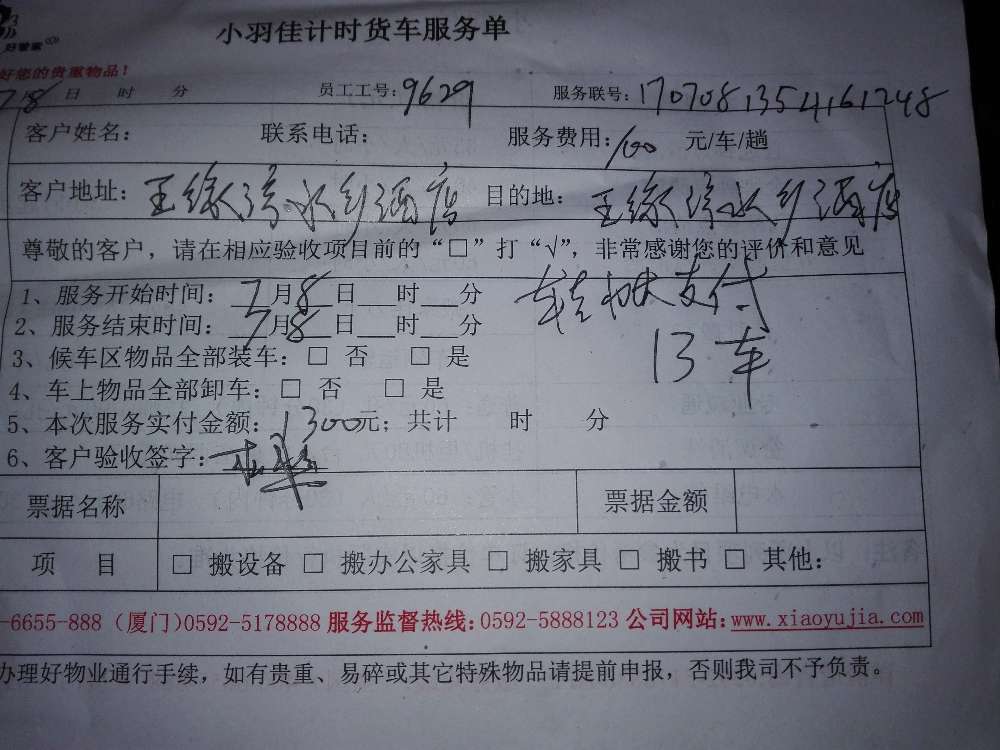 小羽佳计时货车服务单
好您的贵重物品!
7月8日 时 分 员工工号:9629 服务联号:1707081354161248
客户姓名: 联系电话: 服务费用:100 元/车/趟
客户地址: 水乡酒店 目的地: 水乡酒店
尊敬的客户，请在相应验收项目前的“□”打“√”，非常感谢您的评价和意见
1、服务开始时间:7月8日___时___分 转帐支付
2、服务结束时间:7月8日___时___分 13车
3、候车区物品全部装车:□ 否 □ 是
4、车上物品全部卸车:□ 否 □ 是
5、本次服务实付金额:1300元; 共计 时 分
6、客户验收签字:
票据名称 票据金额
项 目 □ 搬设备 □ 搬办公家具 □ 搬家具 □ 搬书 □ 其他:
-6655-888 (厦门)0592-5178888 服务监督热线:0592-5888123 公司网站:www.xiaoyujia.com
办理好物业通行手续，如有贵重、易碎或其它特殊物品请提前申报，否则我司不予负责。